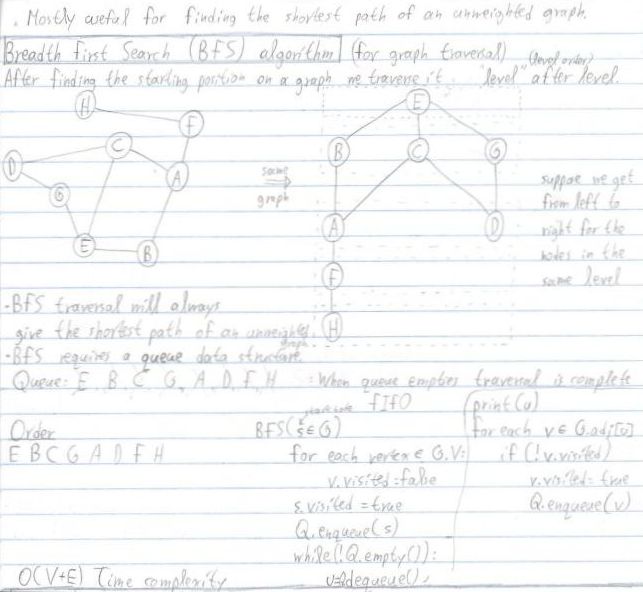 . Mostly useful for finding the shortest path of an unweighted graph.
Breadth first Search (BFS) algorithm (for graph traversal)
(level order)
After finding the starting position on a graph we traverse it "level" after level.
H
F
C
D
A
G
E
B
same
graph
E
B
C
G
A
D
F
H
suppose we get
from left to
right for the
nodes in the
same level
-BFS traversal will always
give the shortest path of an unweighted
graph
-BFS requires a queue data structure.
Queue: E B C G A D F H : When queue empties traversal is complete
FIFO
Order
E B C G A D F H
BFS(s∈G)
for each vertex ∈ G.V:
v.visited=false
s.visited=true
Q.enqueue(s)
while(!Q.empty()):
print(u)
for each v∈G.adj[u]
if(!v.visited)
v.visited=true
Q.enqueue(v)
O(V+E) Time complexity